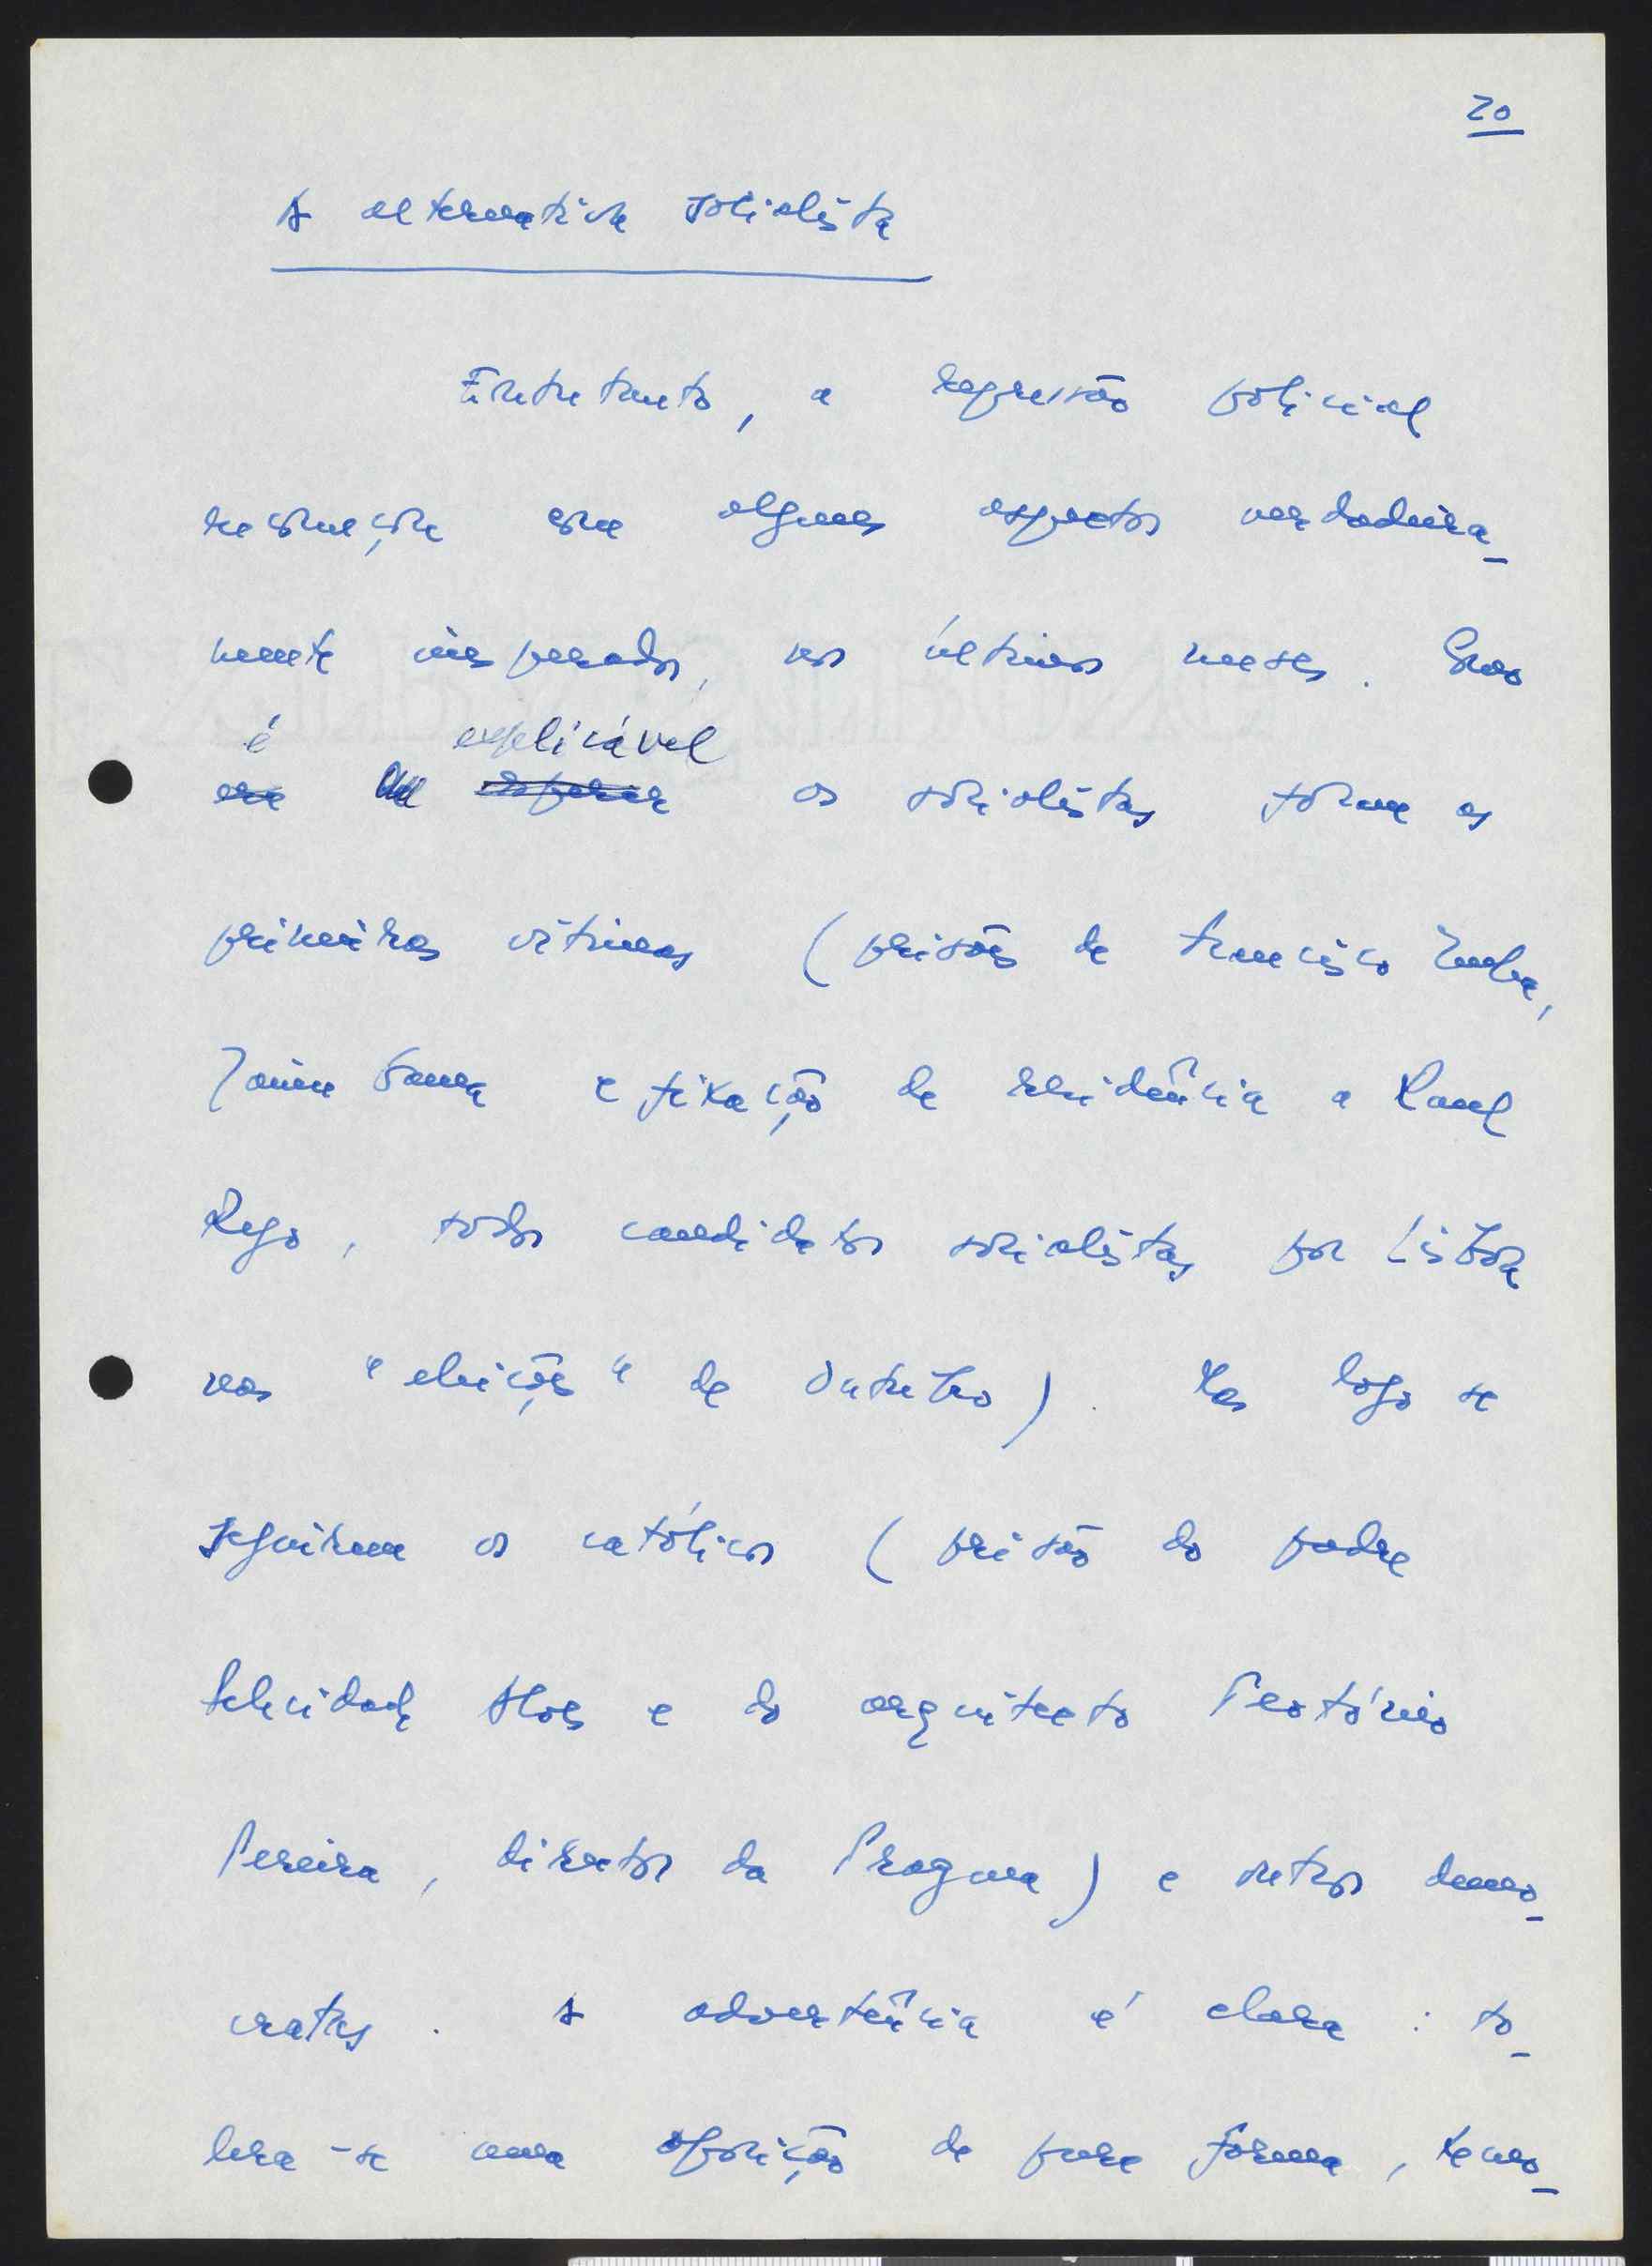 20
A alternativa socialista
Entretanto, a repressão policial
recomeçou com alguns aspectos verdadeira-
mente inesperados, nos últimos meses. Como
é explicável
era que esperar os socialistas foram as
primeiras vítimas (prisões de Francisco Zenha,
Jaime Gama e fixação de residência a Raul
Rego, todos candidatos socialistas por Lisboa
nas "eleições" de Outubro). Mas logo se
seguiram os católicos (prisão do padre
Felicidade Alves e do arquitecto Teotónio
Pereira, director da Pragma) e outros demo-
cratas. A advertência é clara: to-
lera-se uma oposição de pura forma,